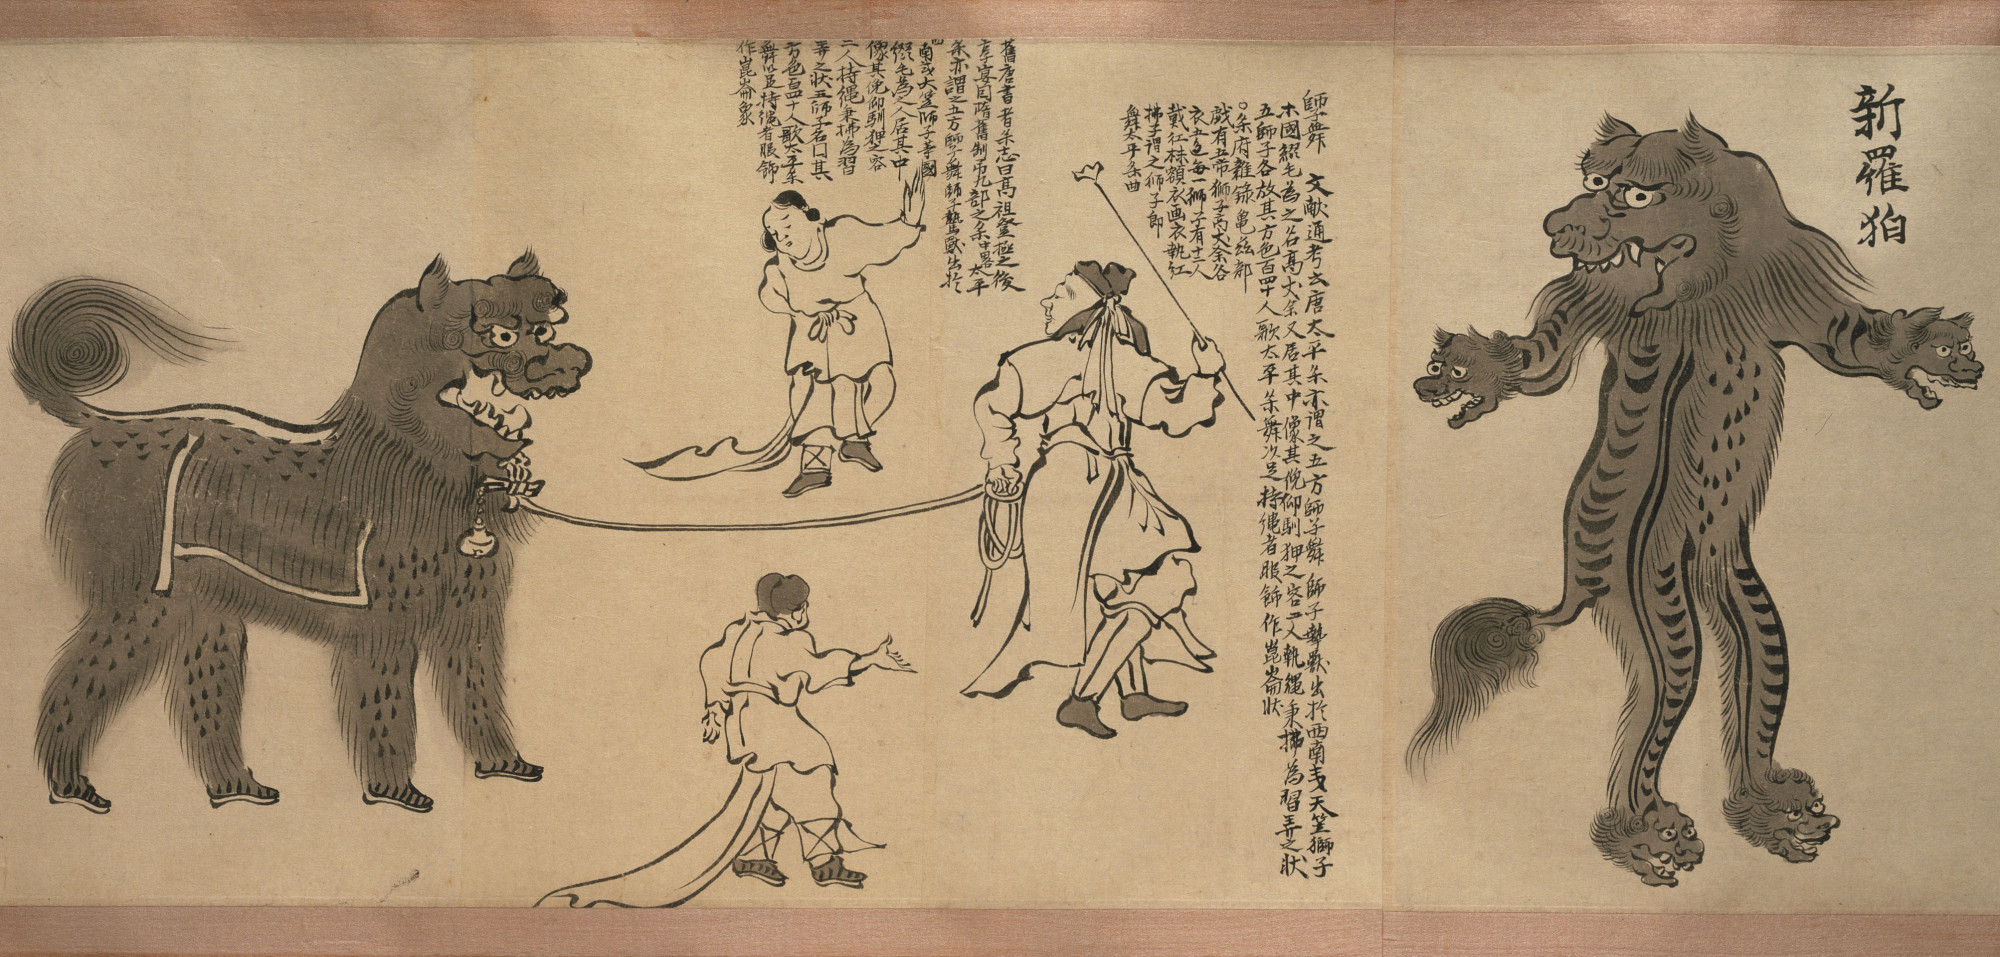 新羅狛
師子舞 文献通考云唐太平楽亦謂之五方師子舞師子摯獣出於西南夷天竺獅子
木國綴毛為之各高丈余人居其中像其俛仰馴狎之容二人執縄秉拂為習弄之状
五師子各放其方色百四十人歌太平楽舞以足持縄者服飾作崑崙状
○楽府雑録亀茲部
戯有五帝獅子高丈余各
衣五色毎一獅子有十二人
戴紅抹額衣画衣執紅
拂子謂之獅子郎
舞太平楽曲
舊唐書音楽志曰高祖登極之後
享宴因隋舊制用九部之楽中畧太平
楽亦謂之五方師子舞師子摯獣出於
西南夷天竺師子等國
綴毛為之人居其中
像其俛仰馴狎之容
二人持縄秉拂為習
弄之状五師子各冂其
方色百四十人歌太平楽
舞以足持縄者服飾
作崑崙象